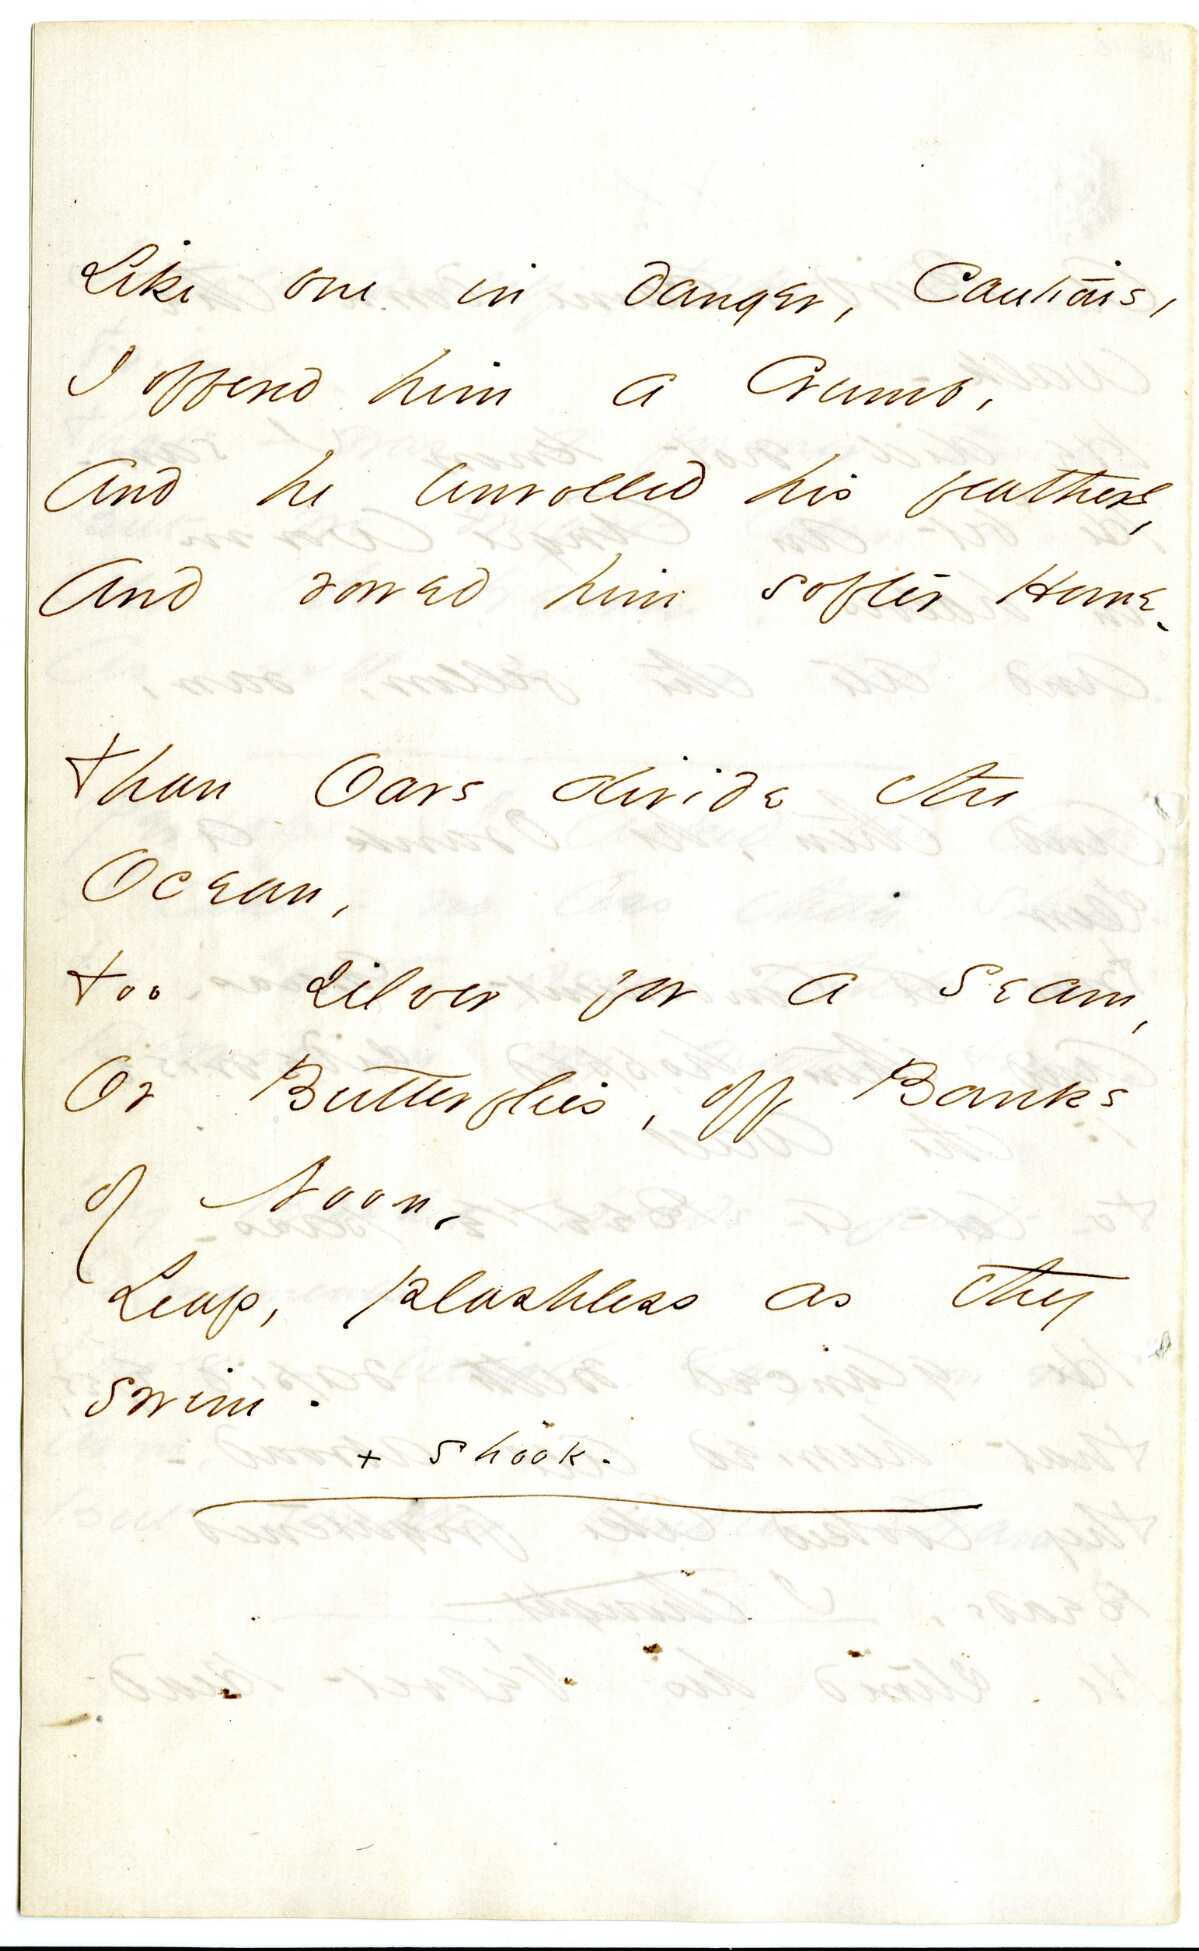 Like one in danger, Cautious,
I offered him a Crumb,
And he unrolled his feathers,
And rowed him softer Home.
Than Oars divide the
Ocean,
Too silver for a seam,
Or Butterflies, off Banks
of Noon,
Leap, plashless as they
swim.
+ shook.